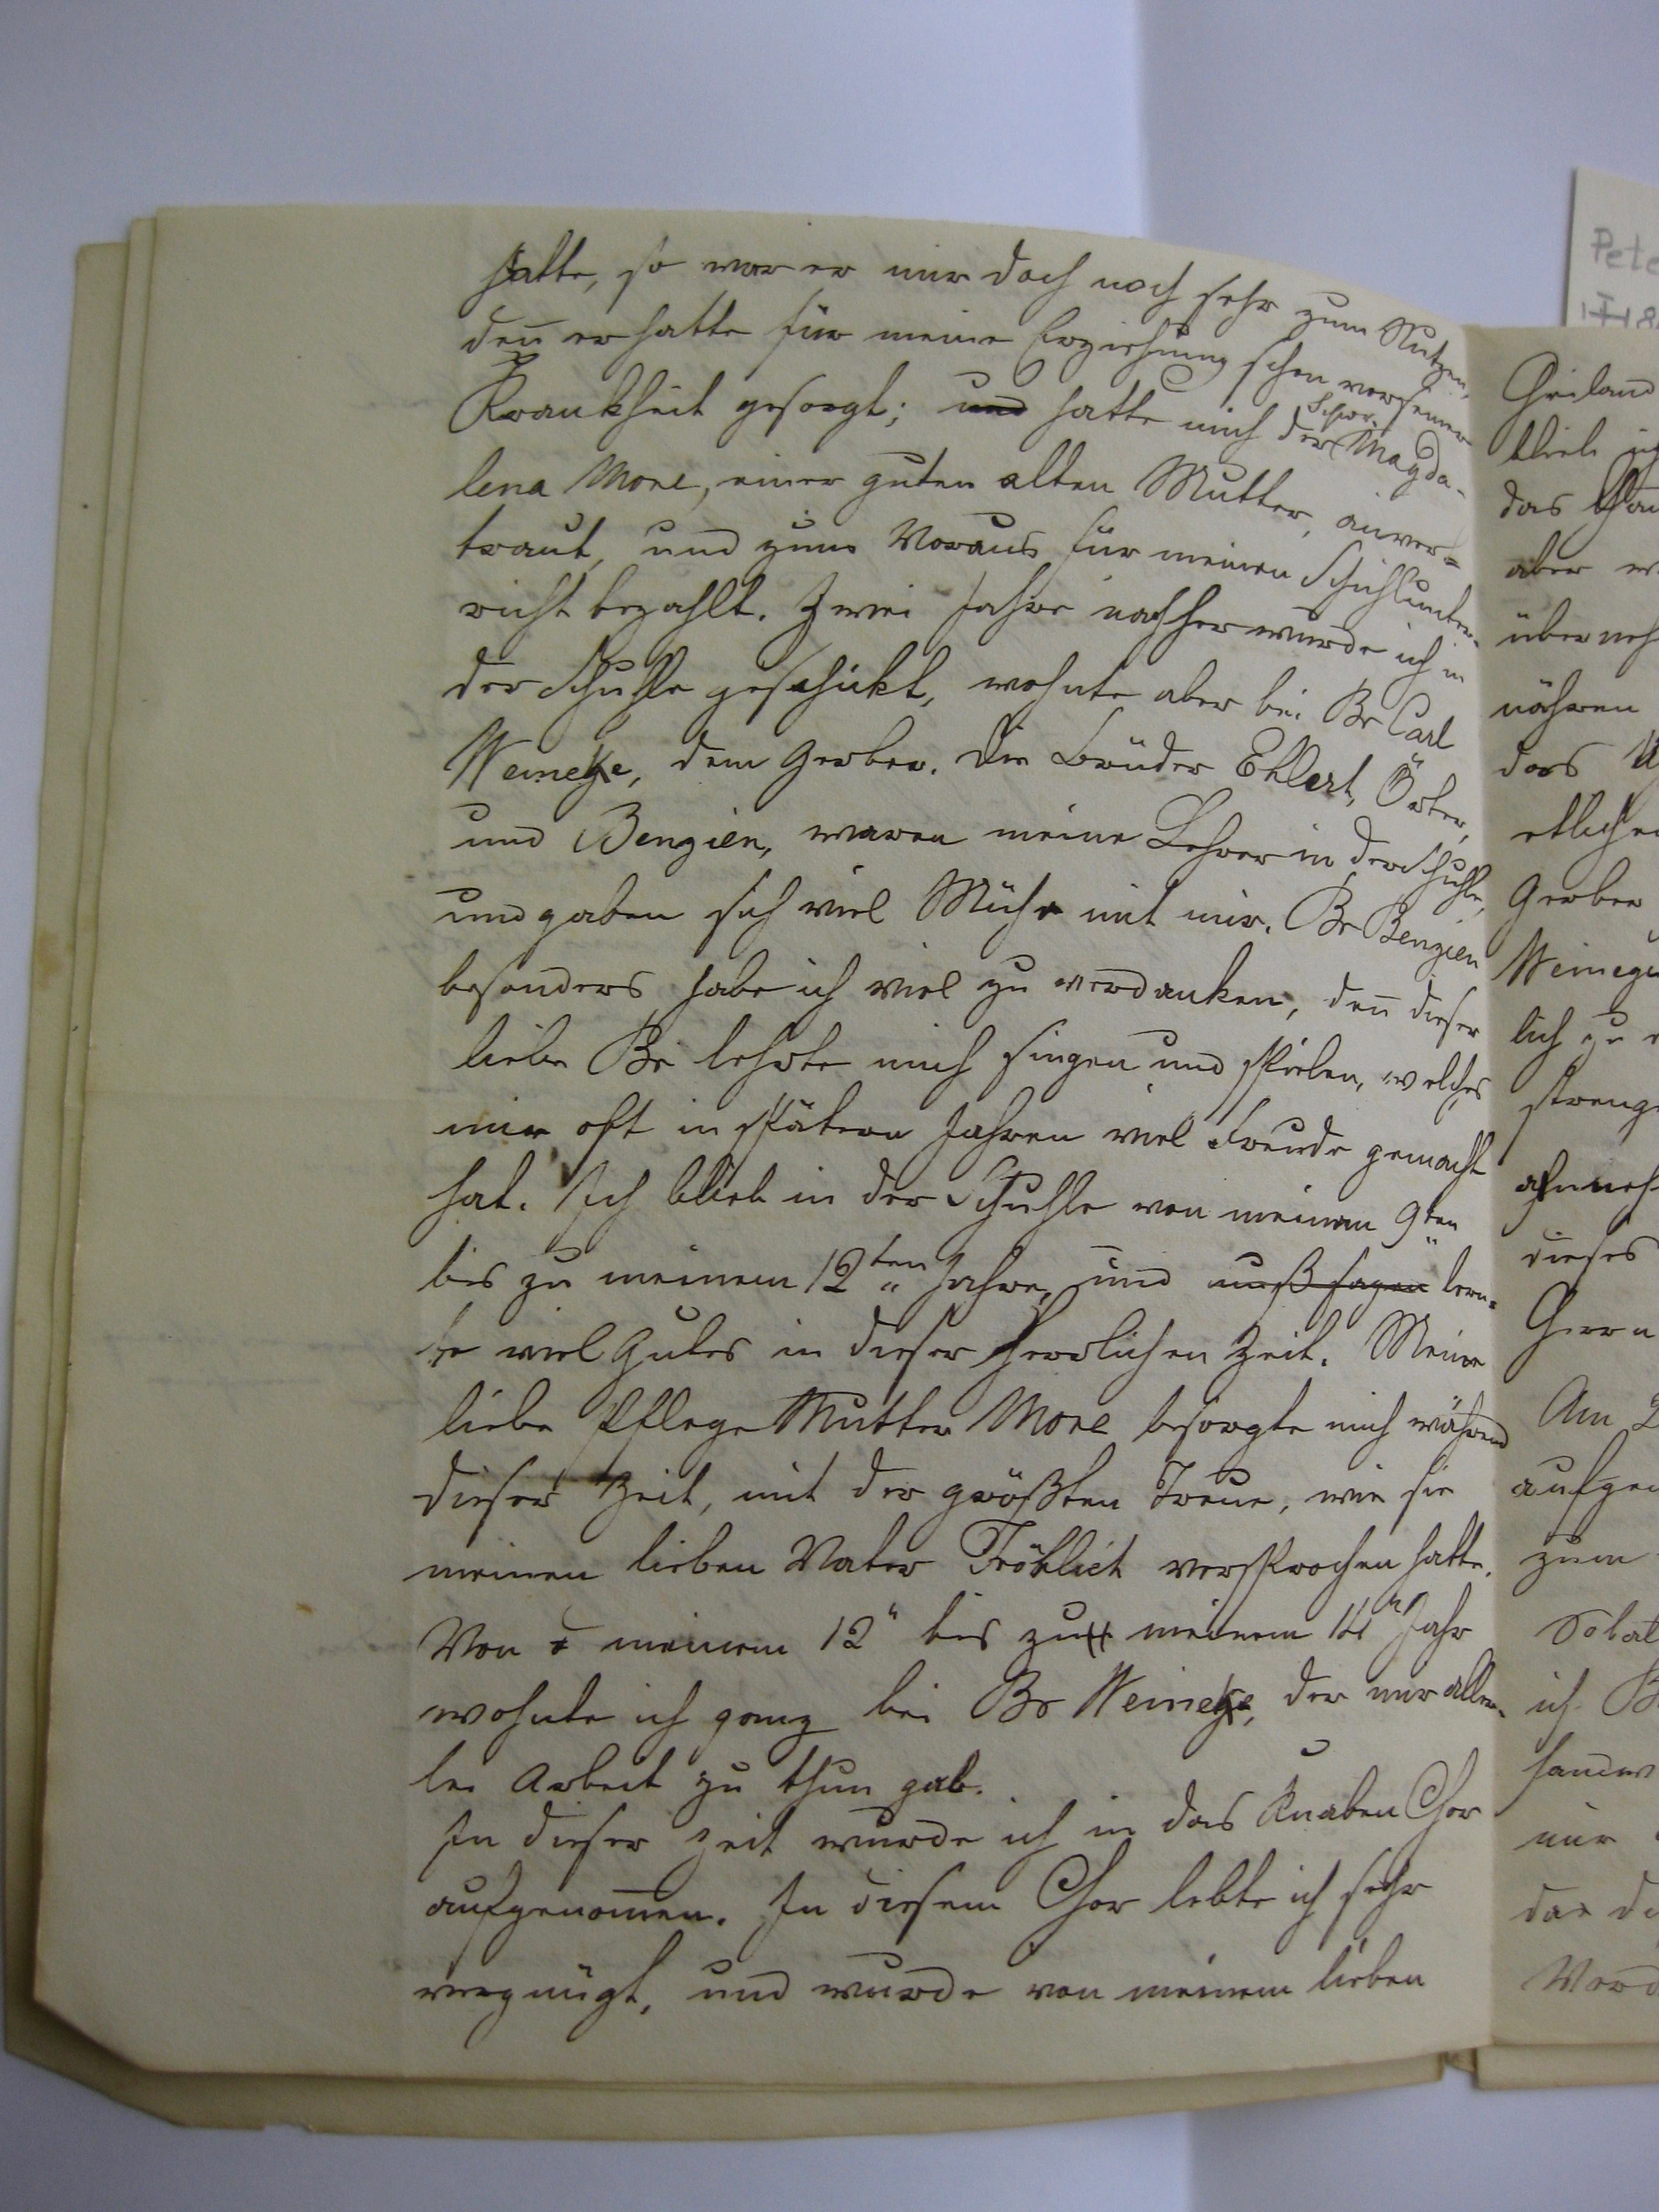 hatte, so war er mir doch noch sehr zum Nutzen,
den̄ er hatte für meine Erziehung schon vor seiner
Krankheit gesorgt; und hatte mich der Schwr. Magda-
lena More, einer guten alten Mutter, anver=
traut, und zum Voraus für meinen Schuhlunter-
richt bezahlt. Zwei Jahre nachher wurde ich in
der Schuhle geschickt, wohnte aber bei Br Carl
Weineke, dem Gerber. Die Brüder Ehlert, Örter,
und Benzien, waren meine Lehrer in der Schuhle,
und gaben sich viel Mühe mit mir. Br Benzien
besonders habe ich viel zu verdanken, den̄ dieser
liebe Br lehrte mich singen und spielen, welches
mir oft in spätern Jahren viel Freude gemacht
hat. Ich blieb in der Schuhle von meinem 9ten
bis zu meinem 12ten Jahre, und muß sagen lern=
te viel Gutes in dieser herrlichen Zeit. Meine
liebe Pflege Mutter More besorgte mich während
dieser Zeit, mit der größten Treue, wie sie
meinen lieben Vater Fröhlich versprochen hatte.
Von meinem 12" bis zu meinem 14" Jahr
wohnte ich ganz bei Br Weineke, der mir aller-
lei Arbeit zu thun gab.
In dieser Zeit wurde ich in das Knaben Chor
aufgenom̄en. In diesem Chor lebte ich sehr
vergnügt, und wurde von meinem lieben
Pete
Heiland
blieb
das
aber
überneh
nähren
das
etliche
Gerber
lich zu
streng
dieses
Herrn
Am 2
aufge
zum
Sobal
ich B
mir
das